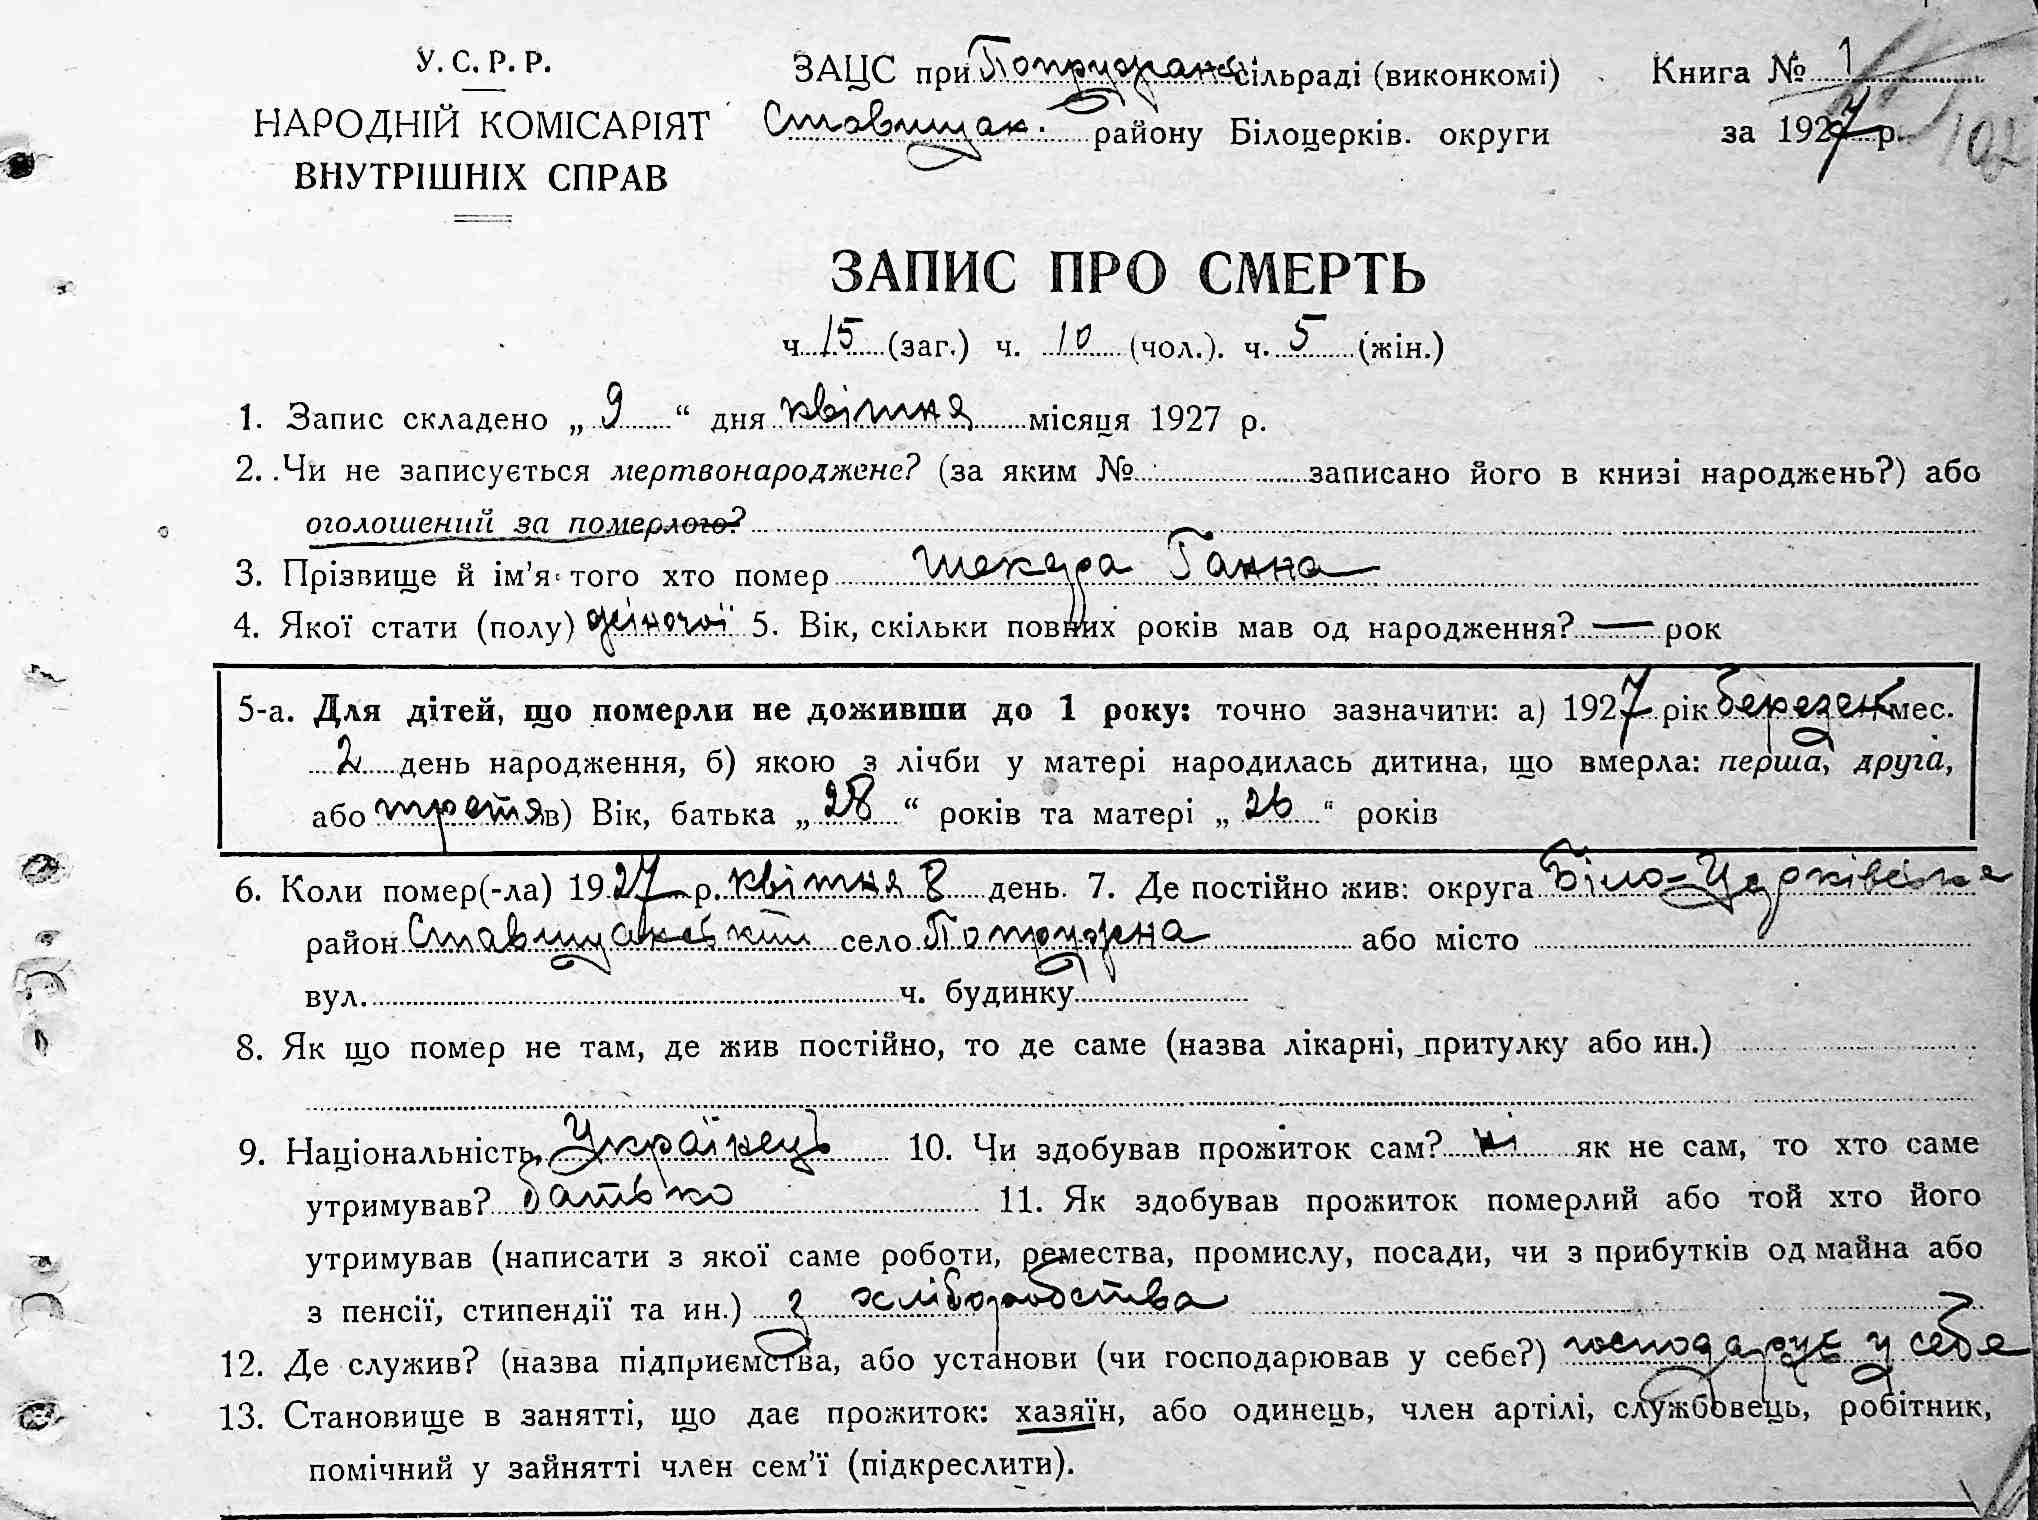 У. С. Р. Р.
НАРОДНІЙ КОМІСАРІЯТ
ВНУТРІШНІХ СПРАВ
ЗАЦС при Попружан. сільраді (виконкомі)
Ставищан. району Білоцерків. округи
Книга № 1
за 1927 р.
102
ЗАПИС ПРО СМЕРТЬ
ч. 15 (заг.) ч. 10 (чол.). ч. 5 (жін.)
1. Запис складено „ 9 “ дня квітня місяця 1927 р.
2. Чи не записується мертвонароджене? (за яким № записано його в книзі народжень?) або
оголошений за померлого?
3. Прізвище й ім’я того хто помер Шекера Ганна
4. Якої стати (полу) жіночої 5. Вік, скільки повних років мав од народження? — рок
5-а. Для дітей, що померли не доживши до 1 року: точно зазначити: а) 1927 рік березен мес.
2 день народження, б) якою з лічби у матері народилась дитина, що вмерла: перша, друга,
або третя в) Вік, батька „ 28 “ років та матері „ 26 “ років
6. Коли помер(-ла) 1927 р. квітня 8 день. 7. Де постійно жив: округа Біло-Церківська
район Ставищанський село Попружна або місто
вул. ч. будинку
8. Як що помер не там, де жив постійно, то де саме (назва лікарні, притулку або ин.)
9. Національність Українець 10. Чи здобував прожиток сам? ні як не сам, то хто саме
утримував? батько 11. Як здобував прожиток померлий або той хто його
утримував (написати з якої саме роботи, ремества, промислу, посади, чи з прибутків од майна або
з пенсії, стипендії та ин.) з хліборобства
12. Де служив? (назва підприємства, або установи (чи господарював у себе?) господарує у себе
13. Становище в занятті, що дає прожиток: хазяїн, або одинець, член артілі, службовець, робітник,
помічний у зайнятті член сем’ї (підкреслити).